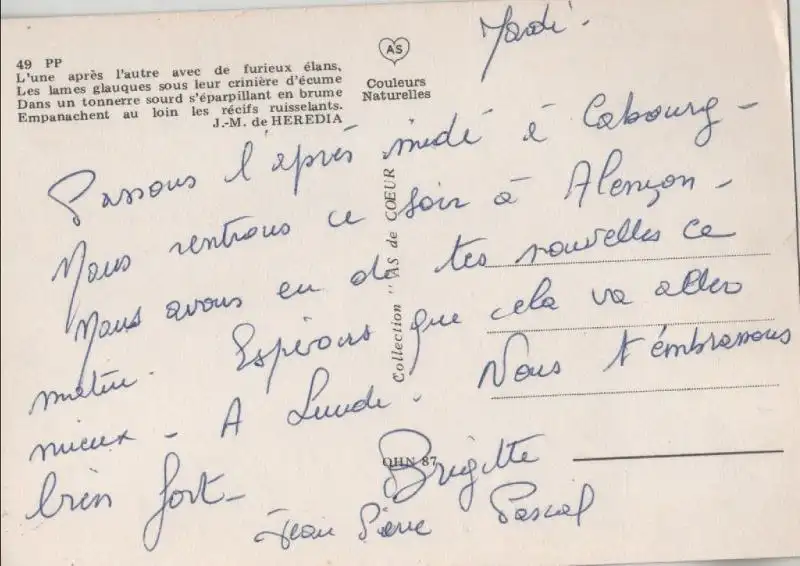 49 PP
L'une après l'autre avec de furieux élans,
Les lames glauques sous leur crinière d'écume
Dans un tonnerre sourd s'éparpillant en brume
Empanachent au loin les récifs ruisselants.
J.-M. de HEREDIA
AS
Couleurs
Naturelles
Collection "AS de CŒUR
QHN 87
Mardi.
Passons l'après midi à Cabourg -
Nous rentrons ce soir à Alençon -
Nous avons eu de tes nouvelles ce
matin. Espérons que cela va aller
mieux - A Lundi. Nous t'embrassons
bien fort -
Brigitte
Jean Pierre Pascal